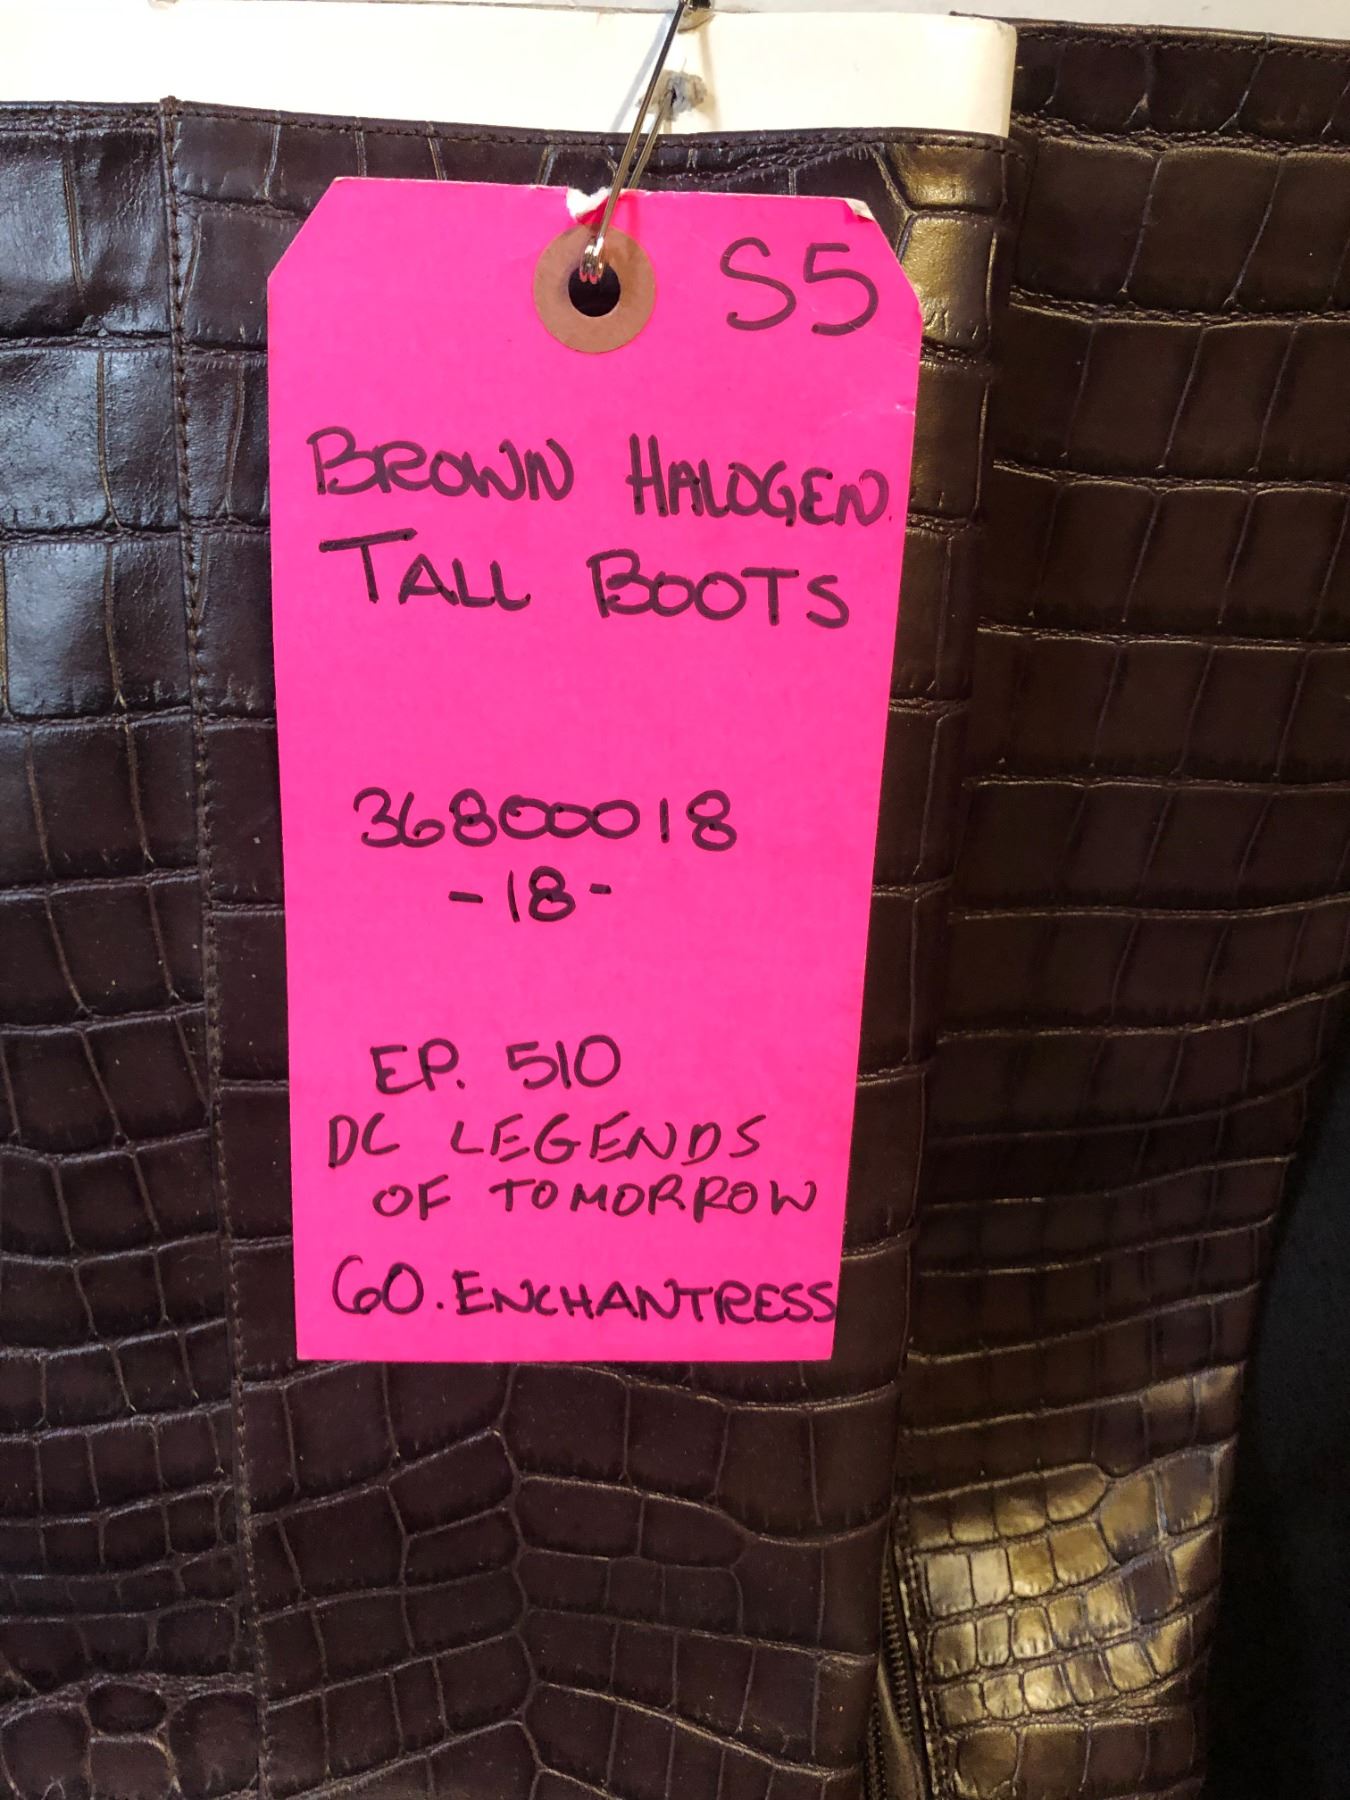 S5
BROWN HALOGEN
TALL BOOTS
36800018
-18-
EP. 510
DC LEGENDS
OF TOMORROW
60. ENCHANTRESS